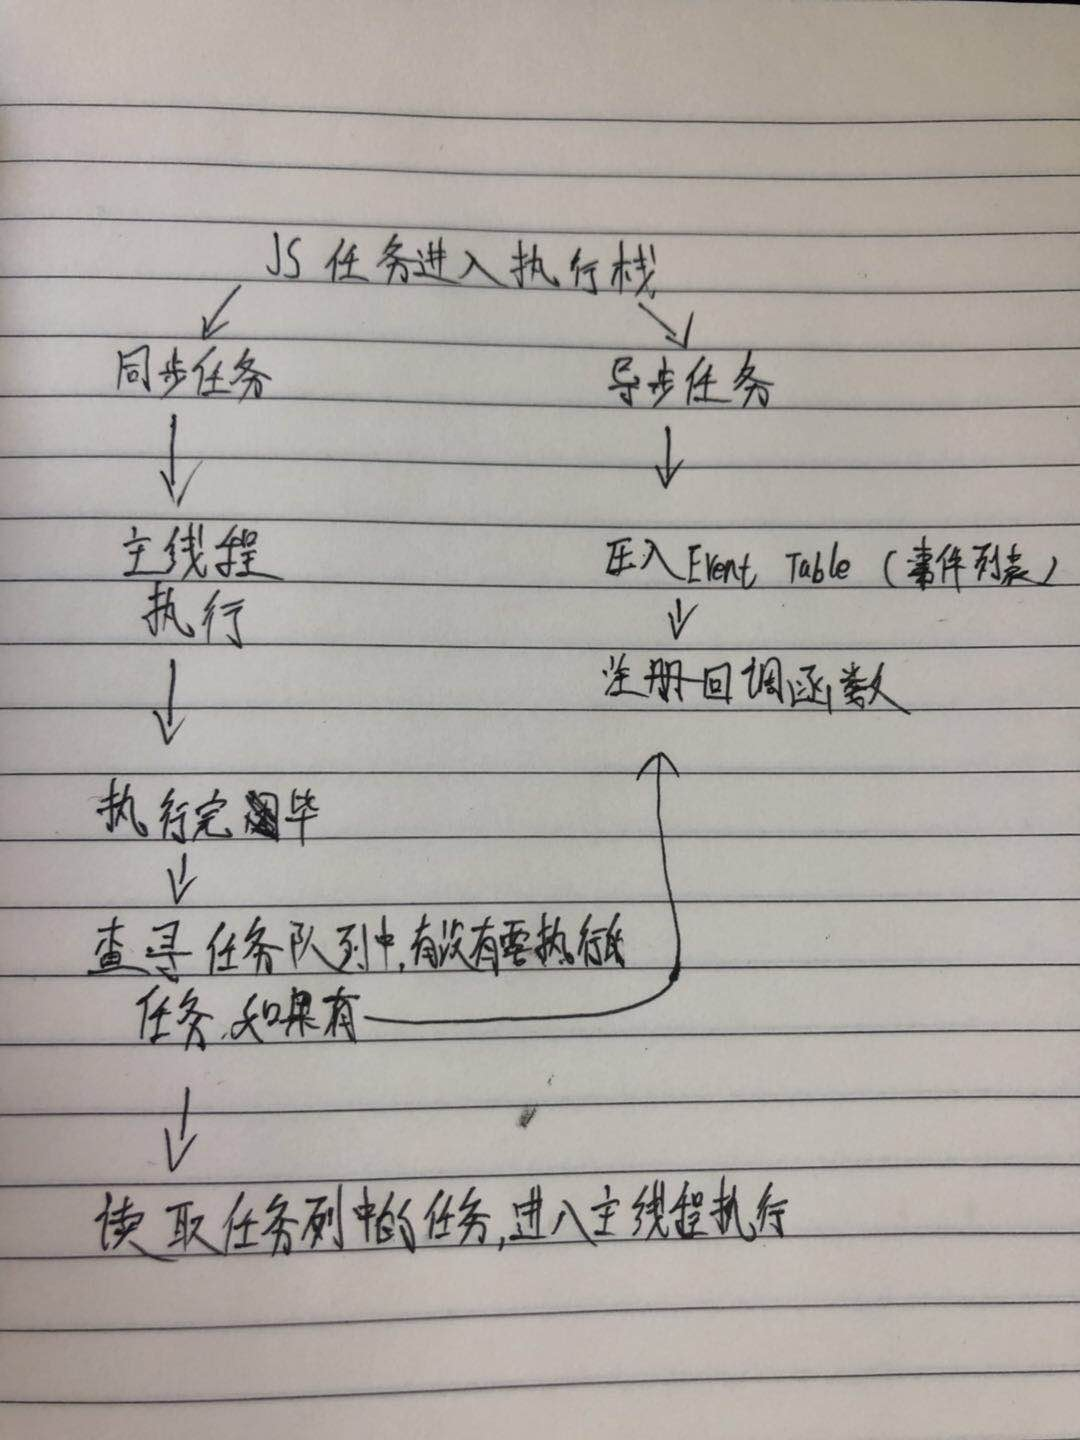 JS 任务进入执行栈
同步任务
异步任务
主线程
执行
压入 Event Table (事件列表)
注册回调函数
执行完毕
查寻任务队列中,有没有需执行的
任务,如果有
读取任务列中的任务,进入主线程执行